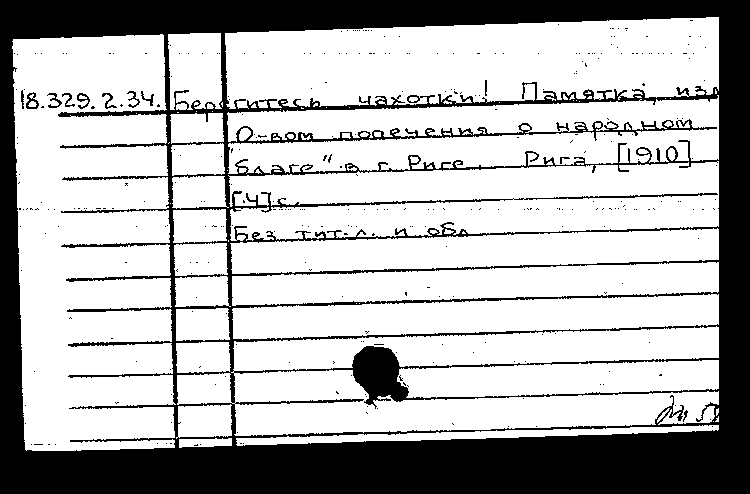 18.329.2.34. Берегитесь чахотки! Памятка, изд
О-вом попечения о народном
благе" в г. Риге. Рига, [1910]
[4] с.
Без тит. л. и обл